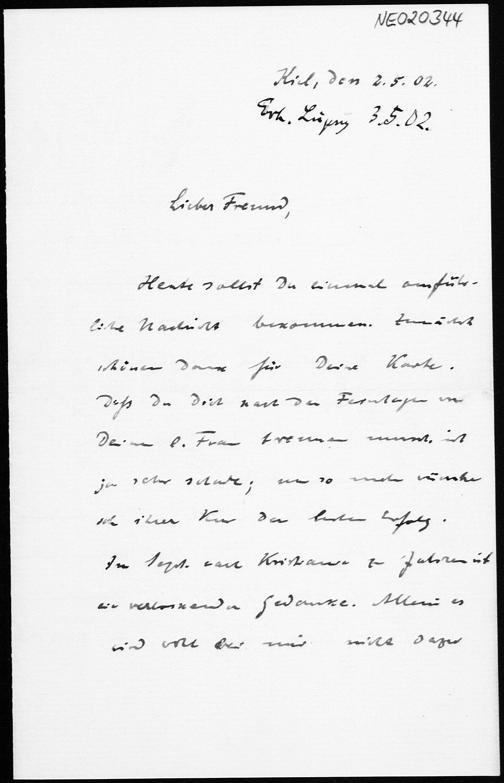 NEO20344
Kiel, den 2.5.02.
Erh. Leipzig 3.5.02.
Lieber Freund,
Heute sollst Du einmal ausführ-
liche Nachricht bekommen. Zunächst
schönen Dank für Deine Karte.
Daß Du Dich nach den Festtagen von
Deiner l. Frau trennen musst, ist
ja sehr schade; um so mehr wünsche
ich ihrer Kur den besten Erfolg.
Im Sept. nach Kristiania zu fahren ist
ein verlockender Gedanke. Allein es
wird wohl bei mir nicht dazu